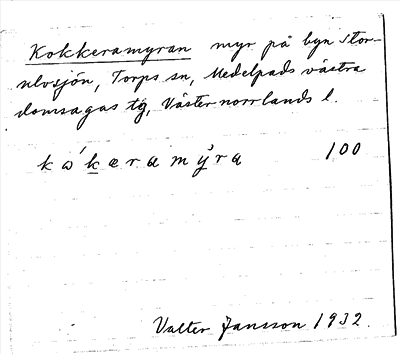 Kokkeramyran myr på byn Stor-
ulvsjön, Torps sn, Medelpads västra
domsagas tg, Västernorrlands l.
kώkæramy̆ra 100
Valter Jansson 1932.